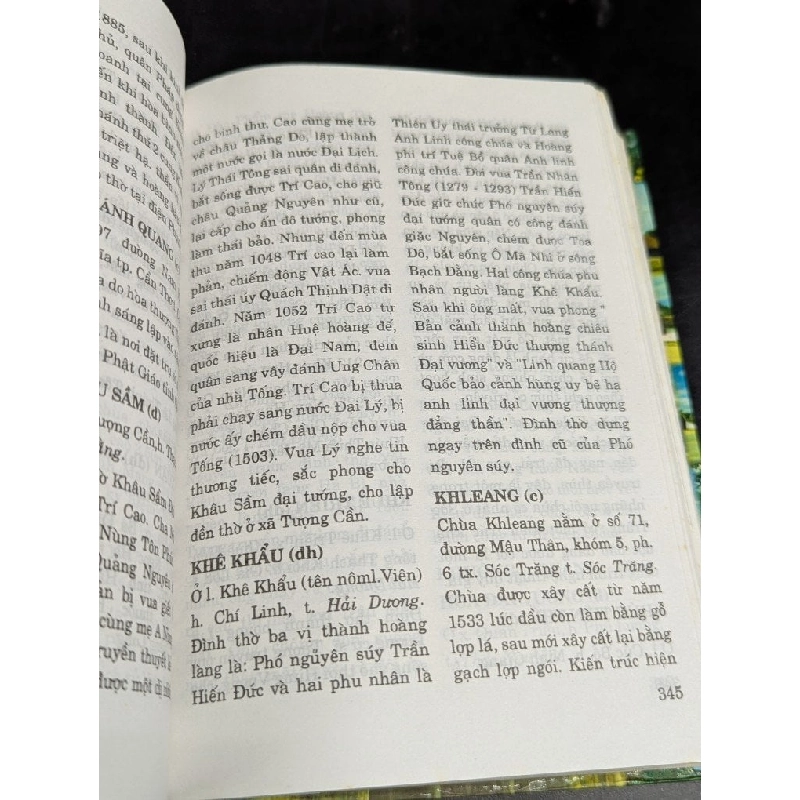 885, sau khi
hủ, quân Pháp
oanh tại cung
ến khi hòa
nh thành
hánh thứ 2
triệt hạ.
ng và hoàng
thờ tại
ÁNH QUANG
97 đường
ĩa tp. Cần Thơ
a do hòa thượng
nh sáng lập
là nơi đặt trụ
Phật Giáo
U SẦM (đ)
ượng Cần,h.
ằng.
ờ Khâu Sầm
Trí Cao. Cha
Nùng Tôn
Quảng Nguyên
àn bị vua
cùng mẹ A
ruyền thuyết
được một
cho binh thư. Cao cùng mẹ trở
về châu Thảng Do, lập thành
một nước gọi là nước Đại Lịch.
Lý Thái Tông sai quân đi đánh,
bắt sống được Trí Cao, cho giữ
châu Quảng Nguyên như cũ,
lại cấp cho ấn đô tướng, phong
làm thái bảo. Nhưng đến mùa
thu năm 1048 Trí cao lại làm
phản, chiếm động Vật Ác. vua
sai thái úy Quách Thịnh Dật đi
đánh. Năm 1052 Trí Cao tự
xưng là nhân Huệ hoàng đế,
quốc hiệu là Đại Nam, đem
quân sang vây đánh Ung Châu
của nhà Tống. Trí Cao bị thua
phải chạy sang nước Đại Lý, bị
nước ấy chém đầu nộp cho vua
Tống (1503). Vua Lý nghe tin
thương tiếc, sắc phong cho
Khâu Sầm đại tướng, cho lập
đền thờ ở xã Tượng Cần.
KHÊ KHẨU (đh)
Ở l. Khê Khẩu (tên nôml.Viên)
h. Chí Linh, t. Hải Dương.
Đình thờ ba vị thành hoàng
làng là: Phó nguyên súy Trần
Hiến Đức và hai phu nhân là
Thiên Uy thái trưởng Từ Lang
Anh Linh công chúa và Hoàng
phi trí Tuệ Bồ quân Anh linh
công chúa. Đời vua Trần Nhân
Tông (1279 - 1293) Trần Hiến
Đức giữ chức Phó nguyên súy
đại tướng quân có công đánh
giặc Nguyên, chém được Toa
Đô, bắt sống Ô Mã Nhi ở sông
Bạch Đằng. Hai công chúa phu
nhân người làng Khê Khẩu.
Sau khi ông mất, vua phong "
Bản cảnh thành hoàng chiêu
sinh Hiển Đức thượng thánh
Đại vương" và "Linh quang Hộ
Quốc bảo cảnh hùng uy bệ hạ
anh linh đại vương thượng
đẳng thần". Đình thờ dựng
ngay trên đình cũ của Phó
nguyên súy.
KHLEANG (c)
Chùa Khleang nằm ở số 71,
đường Mậu Thân, khóm 5, ph.
6 tx. Sóc Trăng t. Sóc Trăng.
Chùa được xây cất từ năm
1533 lúc đầu còn làm bằng gỗ
lợp lá, sau mới xây cất lại bằng
gạch lợp ngói. Kiến trúc hiện
345